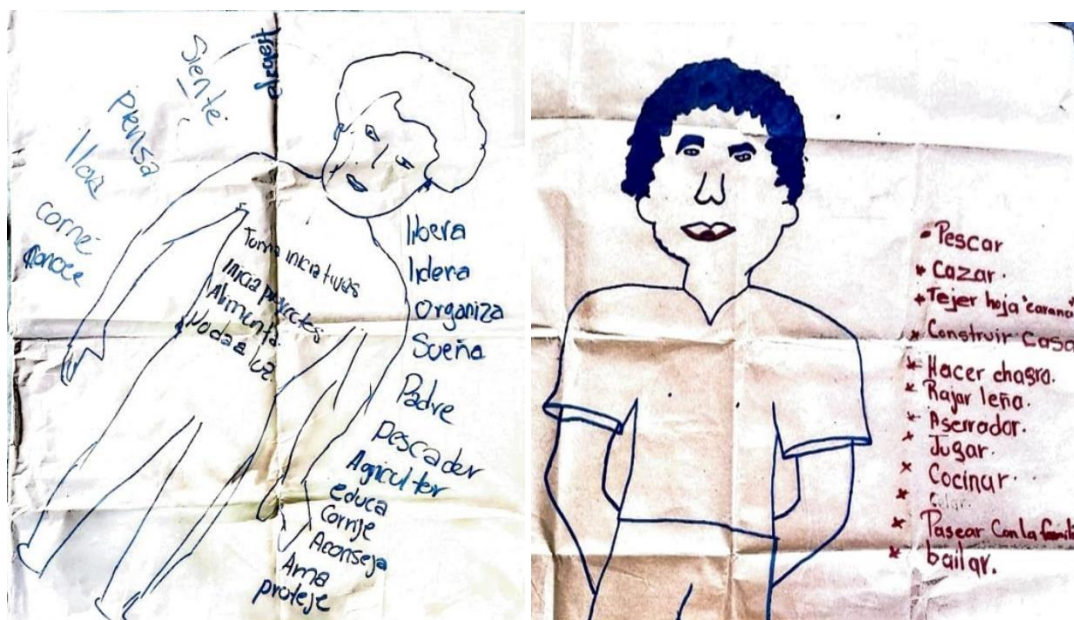 Siente
piensa
llora
come
conoce
Toma iniciativas
Inicia proyectos
Alimenta
No da a luz
libera
lidera
Organiza
Sueña
Padre
pescador
Agricultor
educa
Corrije
Aconseja
Ama
proteje
- Pescar
* Cazar.
* Tejer hoja "carana"
* Construir Casa
* Hacer chagra.
* Rajar leña.
* Aserrador.
* Jugar.
* Cocinar.
* Pasear Con la famili
* bailar.